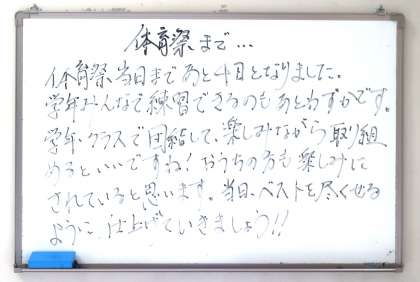 体育祭まで…
体育祭当日まであと4日となりました。
学年みんなで練習できるのもあとわずかです。
学年・クラスで団結して、楽しみながら取り組
めるといいですね!おうちの方も楽しみに
されていると思います。当日、ベストを尽くせる
ように仕上げていきましょう!!